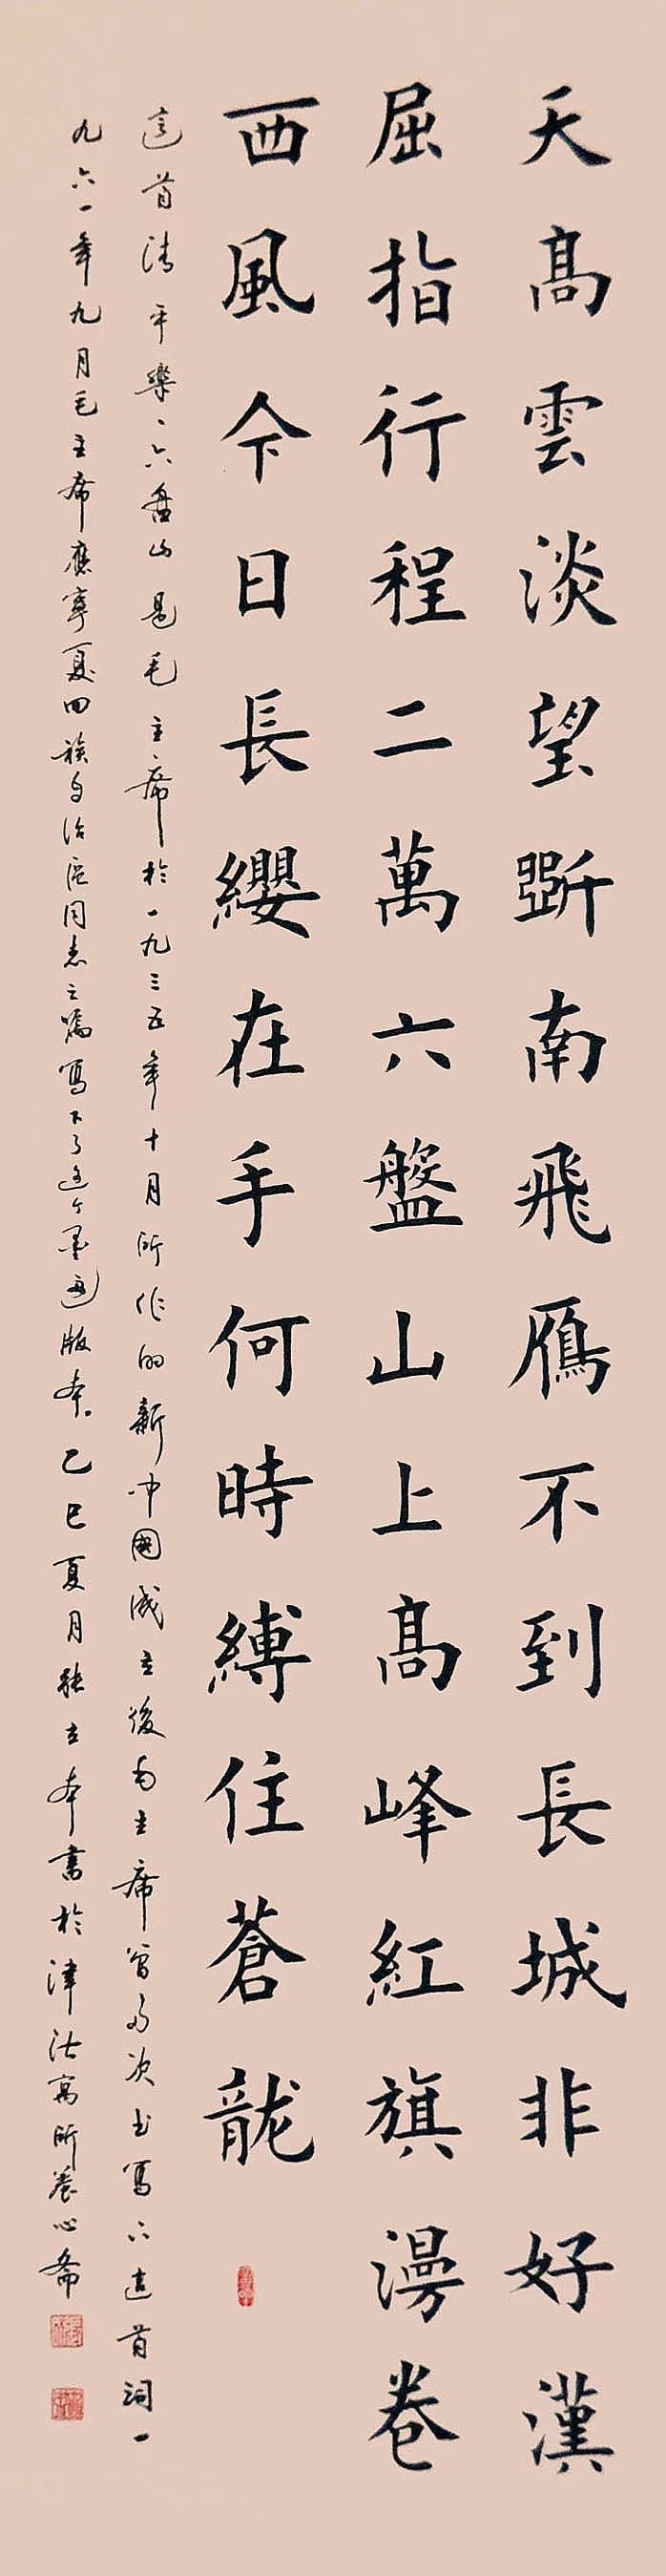 天高雲淡望斷南飛雁不到長城非好漢
屈指行程二萬六盤山上高峰紅旗漫卷
西風今日長纓在手何時縛住蒼龍
這首清平樂、六盤山是毛主席於一九三五年十月所作的新中國成立後毛主席曾多次書寫下這首詞一
九六一年九月毛主席應寧夏回族自治區同志之囑寫下了這个墨迹版本。乙巳夏月張立本書於津沽寓所養心齋